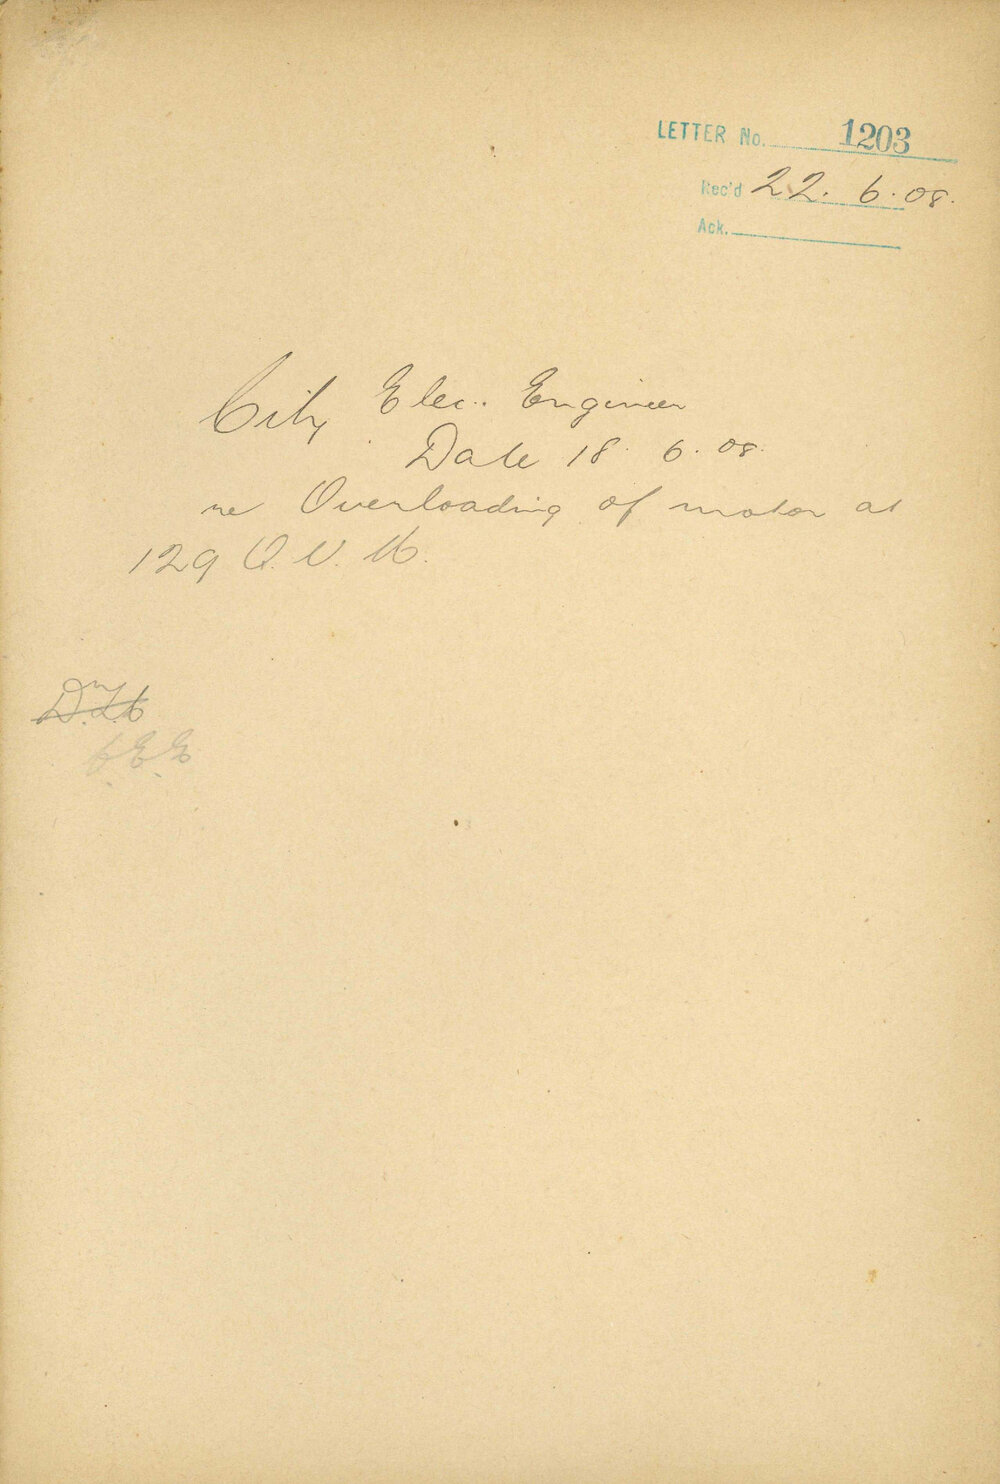 LETTER No. 1203
Rec'd 22. 6. 08.
Ack.
City Elec. Engineer
Date 18. 6. 08.
re Overloading of motor at
129 Q. V. M.
C.E.E.